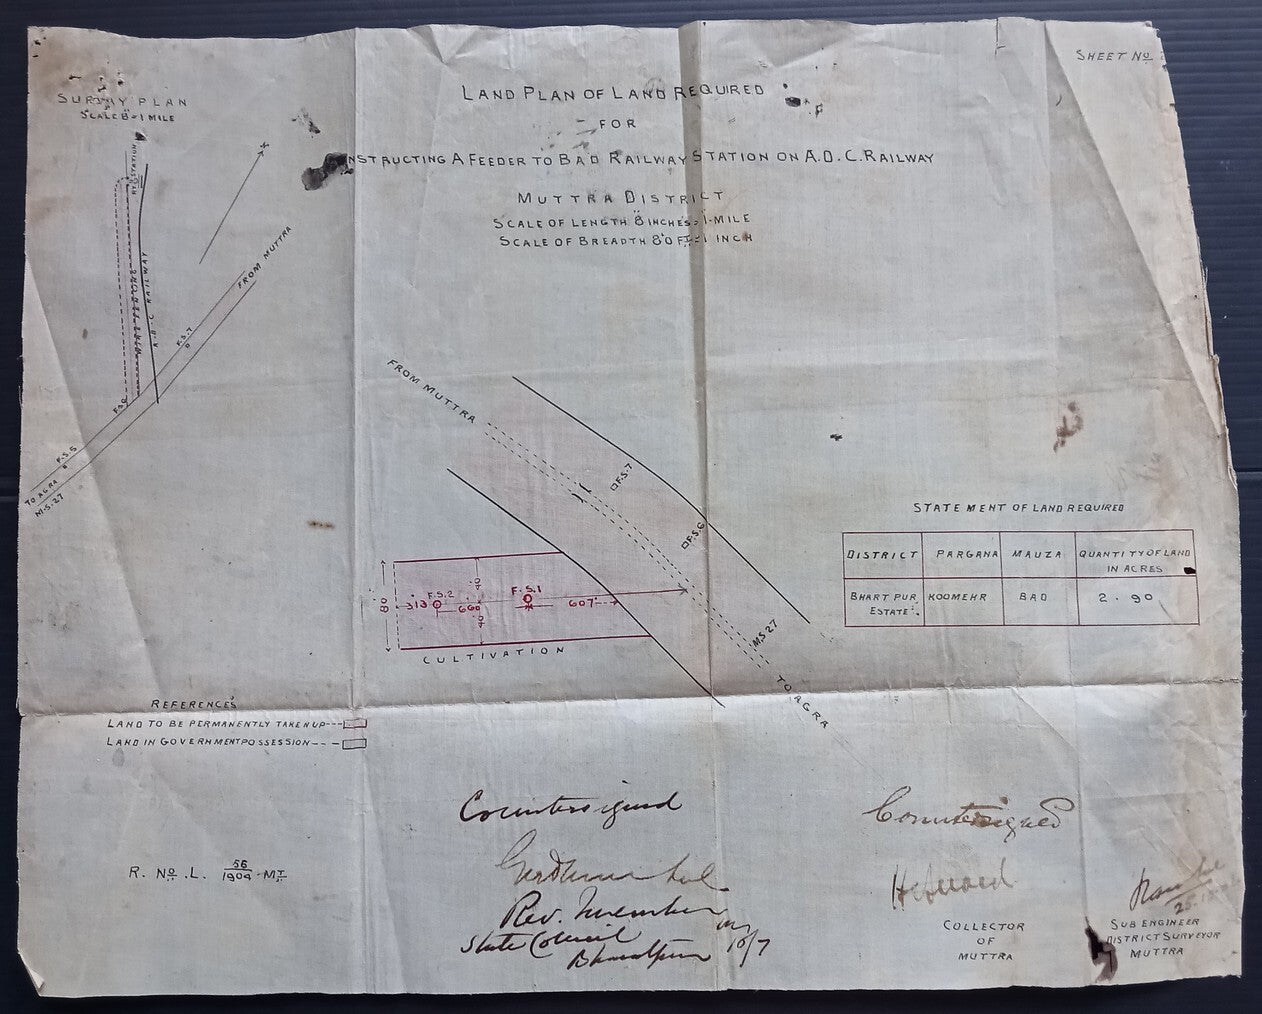 SHEET NO
SURVAY PLAN
SCALE 8"=1 MILE
LAND PLAN OF LAND REQUIRED
FOR
NSTRUCTING A FEEDER TO BAD RAILWAY STATION ON A.D.C. RAILWAY
MUTTRA DISTRICT
SCALE OF LENGTH 8 INCHES=1-MILE
SCALE OF BREADTH 80 FT=1 INCH
N
RY STATION
A.D.C RAILWAY
FROM MUTTRA
F.S.7
F.S.6
F.S.5
TO AGRA
M.S.27
FROM MUTTRA
F.S.7
F.S.6
M.S 27
TO AGRA
80
313
F.S.2
660
40
40
F.S.1
607
CULTIVATION
STATEMENT OF LAND REQUIRED
DISTRICT PARGANA MAUZA QUANTITY OF LAND IN ACRES
BHARTPUR ESTATE. KOOMEHR BAD 2.90
REFERENCES
LAND TO BE PERMANENTLY TAKEN UP---
LAND IN GOVERNMENT POSSESSION---
R. NO. L. 56/1904 MT
Countersigned
Rev. Member
State Council
Bharatpur
10/7
Countersigned
COLLECTOR
OF
MUTTRA
SUB ENGINEER
DISTRICT SURVEYOR
MUTTRA